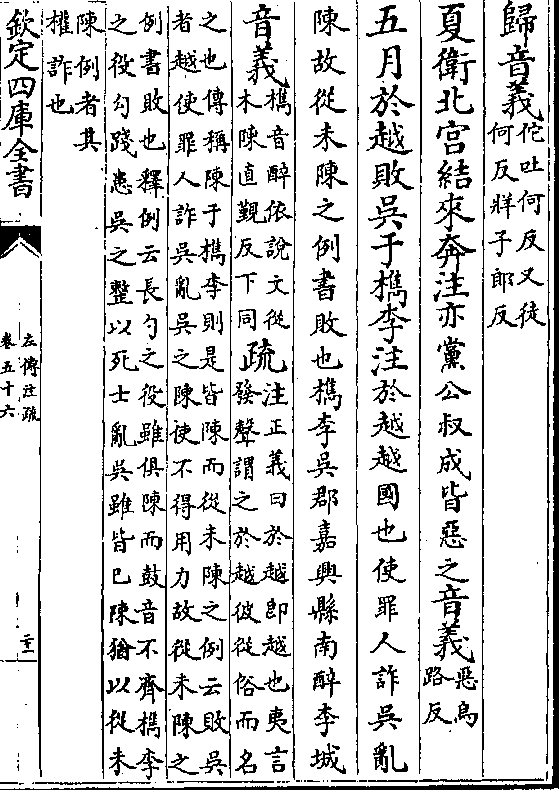 歸音義佗吐何反又徒
何反牂子郎反
夏衛北宫結來奔注亦黨公叔成皆惡之音義惡烏
路反
五月於越敗吳于檇李注於越越國也使罪人詐吳亂
陳故從未陳之例書敗也檇李吳郡嘉興縣南醉李城
音義檇音醉依說文從
木陳直覲反下同
疏注正義曰於越即越也夷言
發聲謂之於越彼從俗而名
之也傳稱陳于檇李則是皆陳而從未陳之例云敗吳
者越使罪人詐吳亂吳之陳使不得用力故從未陳之
例書敗也釋例云長勺之役雖俱陳而鼓音不齊檇李
之役勾踐患吳之整以死士亂吳雖皆已陳猶以從未
陳例者其
權詐也
欽定四庫全書
左傳注疏
卷五十六